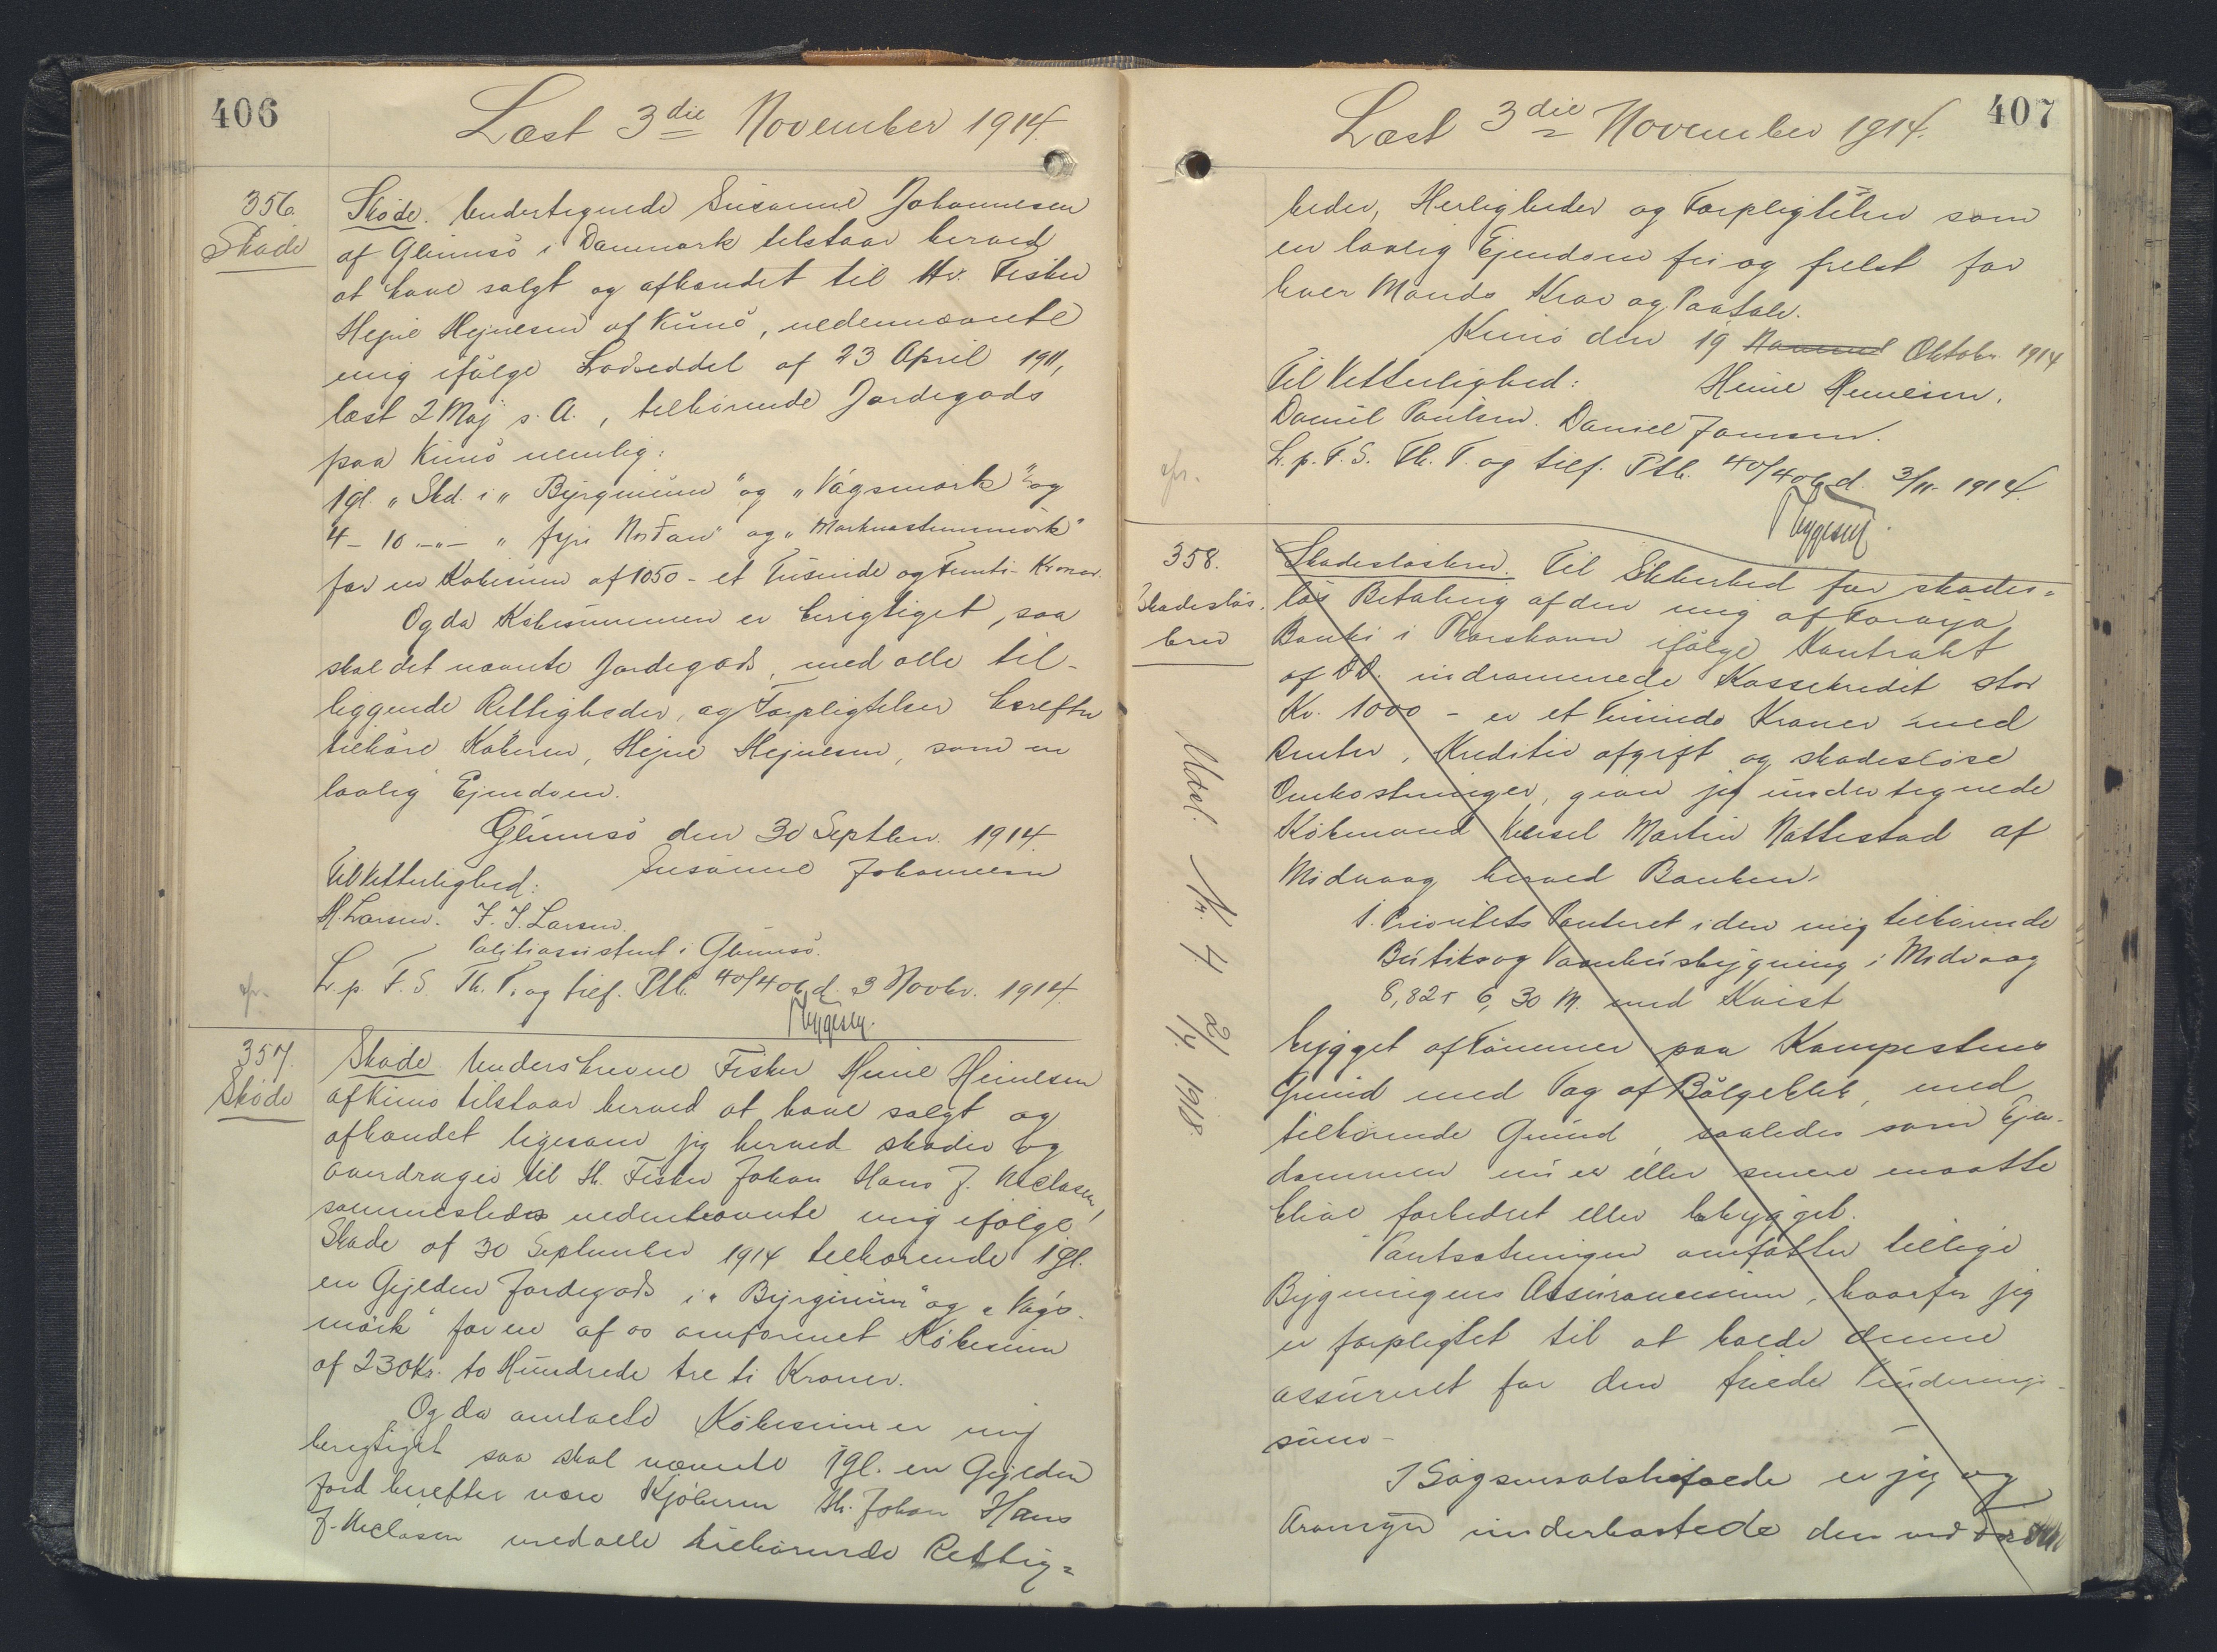 406
Læst 3die November 1914.
356.
Skøde
Skøde. Undertegnede Susanne Johannesen
af Glumsø i Danmark tilstaar herved
at have solgt og afhændet til Hr. Fisker
Hejne Hejnesen af Kunø, nedennævnte
mig ifølge Lodseddel af 23 April 1911,
læst 2 Maj s. A., tilhørende Jordegods
paa Kunø nemlig:
1 gl. " Skd. i " Byrginum " og " Vágsmørk " og
4 - 10 -"- " fyri Norðan " og "
for en Købesum af 1050 - et Tusinde og Femti - Kroner.
Og da Købesummen er berigtiget, saa
skal det nævnte Jordegods, med alle til-
liggende Rettigheder, og Forpligtelser herefter
tilhøre Køberen, Hejne Hejnesen, som en
lovlig Ejendom.
Glumsø den 30 Septbr. 1914
Til Vitterlighed: Susanne Johannesen
H. Larsen. F. J. Larsen.
Politiassistent i Glumsø.
L. p. F. S. Th. T. og tilf. Ptb. 40/406 d. 3 Novbr. 1914.
357.
Skøde
Skøde Underskrevne Fisker Heine Heinesen
af Kunø tilstaar herved at have solgt og
afhændet ligesom jeg herved skøder og
overdrager til Hr. Fisker Johan Hans J. Niclasen,
sammesteds nedennævnte mig ifølge
Skøde af 30 September 1914 tilhørende 1 gl.
en Gylden Jordegods i " Byrginum " og " Vágs-
mørk " for en af os omforenet Købesum
af 230 Kr. to Hundrede tre ti Kroner.
Og da omtalte Købesum er mig
berigtiget saa skal nævnte 1 gl. en Gylden
Jord herefter være Kjøberen Hr. Johan Hans
J. Niclasen med alle tilhørende Rettig=
407
Læst 3die November 1914.
heder, Herligheder og Forpligtelser som
en lovlig Ejendom fri og frelst for
hver Mands Krav og Paatale.
Kunø den 19 Novemb Oktobr. 1914
Til Vitterlighed: Heine Heinesen.
Daniel Poulsen. Daniel Joensen.
L. p. F. S. Th. T. og tilf. Ptb. 40/406 d. 3/11 - 1914.
358.
Skadesløs-
brev
Skadesløsbrev. Til Sikkerhed for skades-
løs Betaling af den mig af Føroya
Banki i Thorshavn ifølge Kontrakt
af D.D. indrømmede Kassekredit stor
Kr. 1000 - er et Tusinde Kroner med
Renter, Kreditiv afgift og skadesløse
Omkostninger, giver jeg undertegnede
Købmand Martin Nattestad af
Midvaag herved Banken
1. Prioritets Panteret i den mig tilhørende
Butiks og Vaanhusbygning i Midvaag
8,82 x 6,30 M. med Kvist
bygget af Tømmer paa Kampestens
Grund med Tag af Bølgeblik, med
tilhørende Grund, saaledes som Ejen-
dommen nu er eller senere maatte
blive forbedret eller bebygget.
Pantsætningen omfatter tillige
Bygningens Assurancesum, hvorfor jeg
er forpligtet til at holde denne
assureret for den fulde Vurderings-
sum -
I Søgsmaalstilfælde er jeg og
Arvinger underkastede den ved
Udsl. Nr. 4 2/4 1918